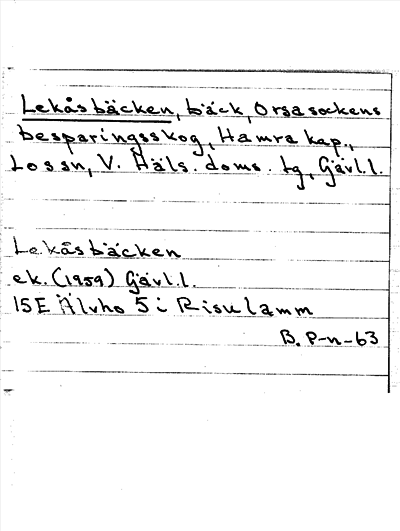 Lekåsbäcken, bäck, Orsa sockens
besparingsskog, Hamra kap.,
Lossn, V. Häls. doms. tg, Gävl.l.
Lekåsbäcken
ek. (1959) Gävl.l.
15E Älvho 5 i Risulamm
B. P-n-63